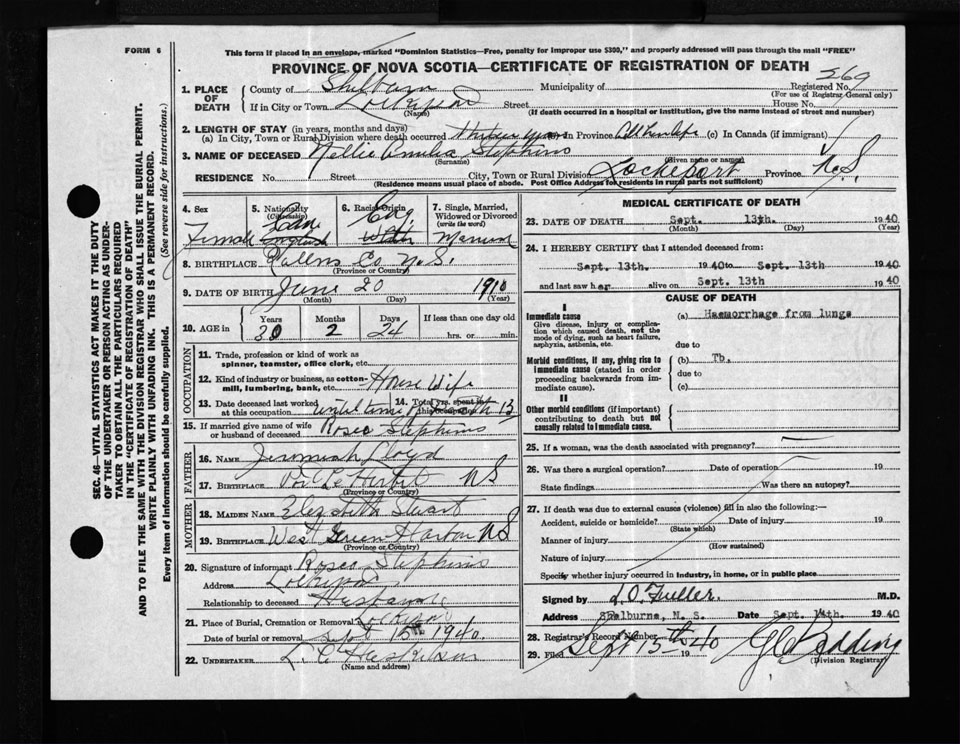 FORM 6
This form if placed in an envelope, marked "Dominion Statistics—Free, penalty for improper use $300," and properly addressed will pass through the mail "FREE"
PROVINCE OF NOVA SCOTIA—CERTIFICATE OF REGISTRATION OF DEATH
269
1. PLACE OF DEATH
County of Municipality of Registered No.
(For use of Registrar General only)
If in City or Town Street House No.
(Name) (If death occurred in a hospital or institution, give the name instead of street and number)
2. LENGTH OF STAY (in years, months and days)
(a) In City, Town or Rural Division where death occurred in Province (c) In Canada (if immigrant)
3. NAME OF DECEASED Nellie Stephins
(Surname) (Given name or names)
RESIDENCE No. Street City, Town or Rural Division Lockeport Province N.S.
(Residence means usual place of abode. Post Office Address for residents in rural parts not sufficient)
4. Sex Female
5. Nationality (Citizenship)
6. Racial Origin
7. Single, Married, Widowed or Divorced (write the word)
8. BIRTHPLACE Co N.S.
(Province or Country)
9. DATE OF BIRTH June 20 1910
(Month) (Day) (Years)
10. AGE in Years Months Days If less than one day old
30 2 24 hrs. or min.
OCCUPATION
11. Trade, profession or kind of work as spinner, teamster, office clerk, etc.
12. Kind of industry or business, as cotton-mill, lumbering, bank, etc. House Wife
13. Date deceased last worked at this occupation until time 14. Total yrs. spent in this occupation 13
15. If married give name of wife or husband of deceased Stephins
FATHER
16. NAME Jeremiah Lloyd
17. BIRTHPLACE NS
(Province or Country)
MOTHER
18. MAIDEN NAME Elezebeth Stuart
19. BIRTHPLACE West Green Harbor NS
(Province or Country)
20. Signature of informant Stephins
Address
Relationship to deceased Husband
21. Place of Burial, Cremation or Removal
Date of burial or removal Sept 15th 1940.
22. UNDERTAKER L. C.
(Name and address)
MEDICAL CERTIFICATE OF DEATH
23. DATE OF DEATH Sept. 13th. 1940
(Month) (Day) (Year)
24. I HEREBY CERTIFY that I attended deceased from:
Sept. 13th. 1940 to Sept. 13th 1940
and last saw her alive on Sept. 13th 1940
CAUSE OF DEATH
I
Immediate cause (a) Haemorrhage from lungs
Give disease, injury or complication which caused death, not the mode of dying, such as heart failure, asphyxia, asthenia, etc.
due to
Morbid conditions, if any, giving rise to immediate cause (stated in order proceeding backwards from immediate cause).
(b) Tb.
due to
(c)
II
Other morbid conditions (if important) contributing to death but not causally related to immediate cause.
25. If a woman, was the death associated with pregnancy?
26. Was there a surgical operation? Date of operation 19
State findings Was there an autopsy?
27. If death was due to external causes (violence) fill in also the following:—
Accident, suicide or homicide? Date of injury 19
(State which)
Manner of injury
(How sustained)
Nature of injury
Specify whether injury occurred in industry, in home, or in public place
Signed by Fuller. M.D.
Address Shelburne, N. S. Date Sept. 14th. 1940
28. Registrar's Record Number
29. Filed Sept 15th 1940
(Division Registrar)
SEC. 46—VITAL STATISTICS ACT MAKES IT THE DUTY
OF THE UNDERTAKER OR PERSON ACTING AS UNDER-
TAKER TO OBTAIN ALL THE PARTICULARS REQUIRED
IN THE "CERTIFICATE OF REGISTRATION OF DEATH"
AND TO FILE THE SAME WITH THE DIVISION REGISTRAR WHO SHALL ISSUE THE BURIAL PERMIT.
WRITE PLAINLY WITH UNFADING INK. THIS IS A PERMANENT RECORD.
Every item of information should be carefully supplied. (See reverse side for instructions.)